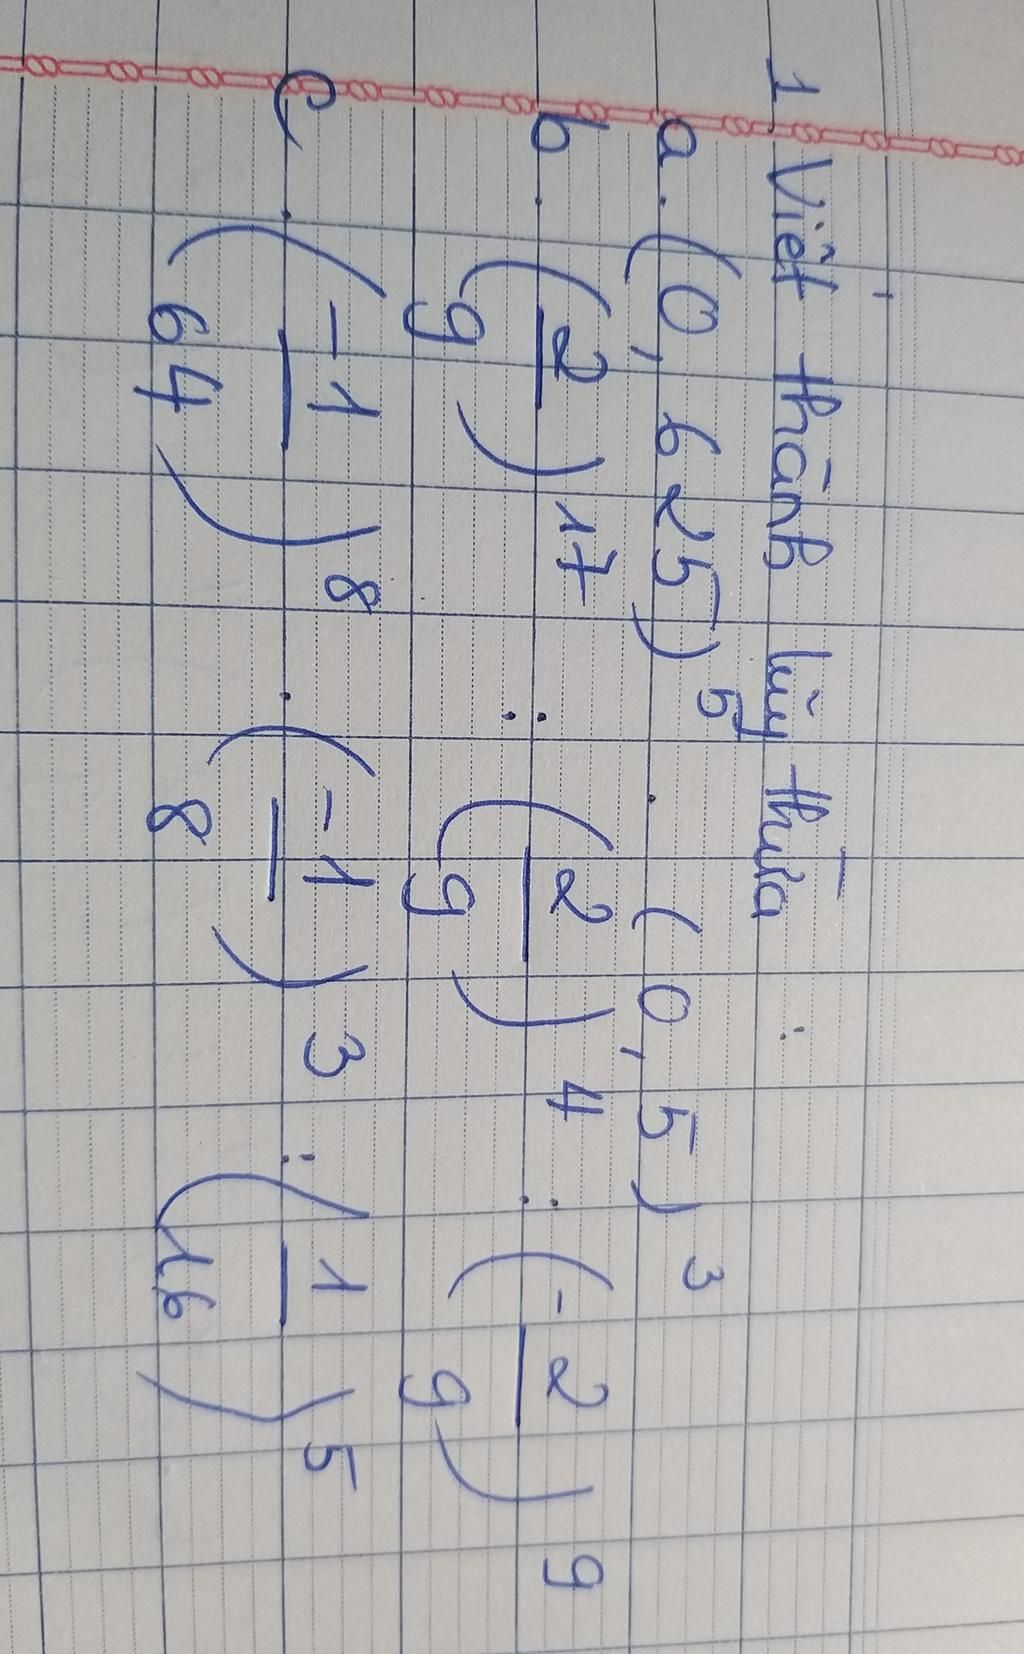 1 Viết thành lũy thừa :
a. (0,625)⁵ . (0,5)³
b. (2/9)¹⁷ : (2/9)⁴ : (-2/9)⁹
c. (-1/64)⁸ . (-1/8)³ : (1/16)⁵